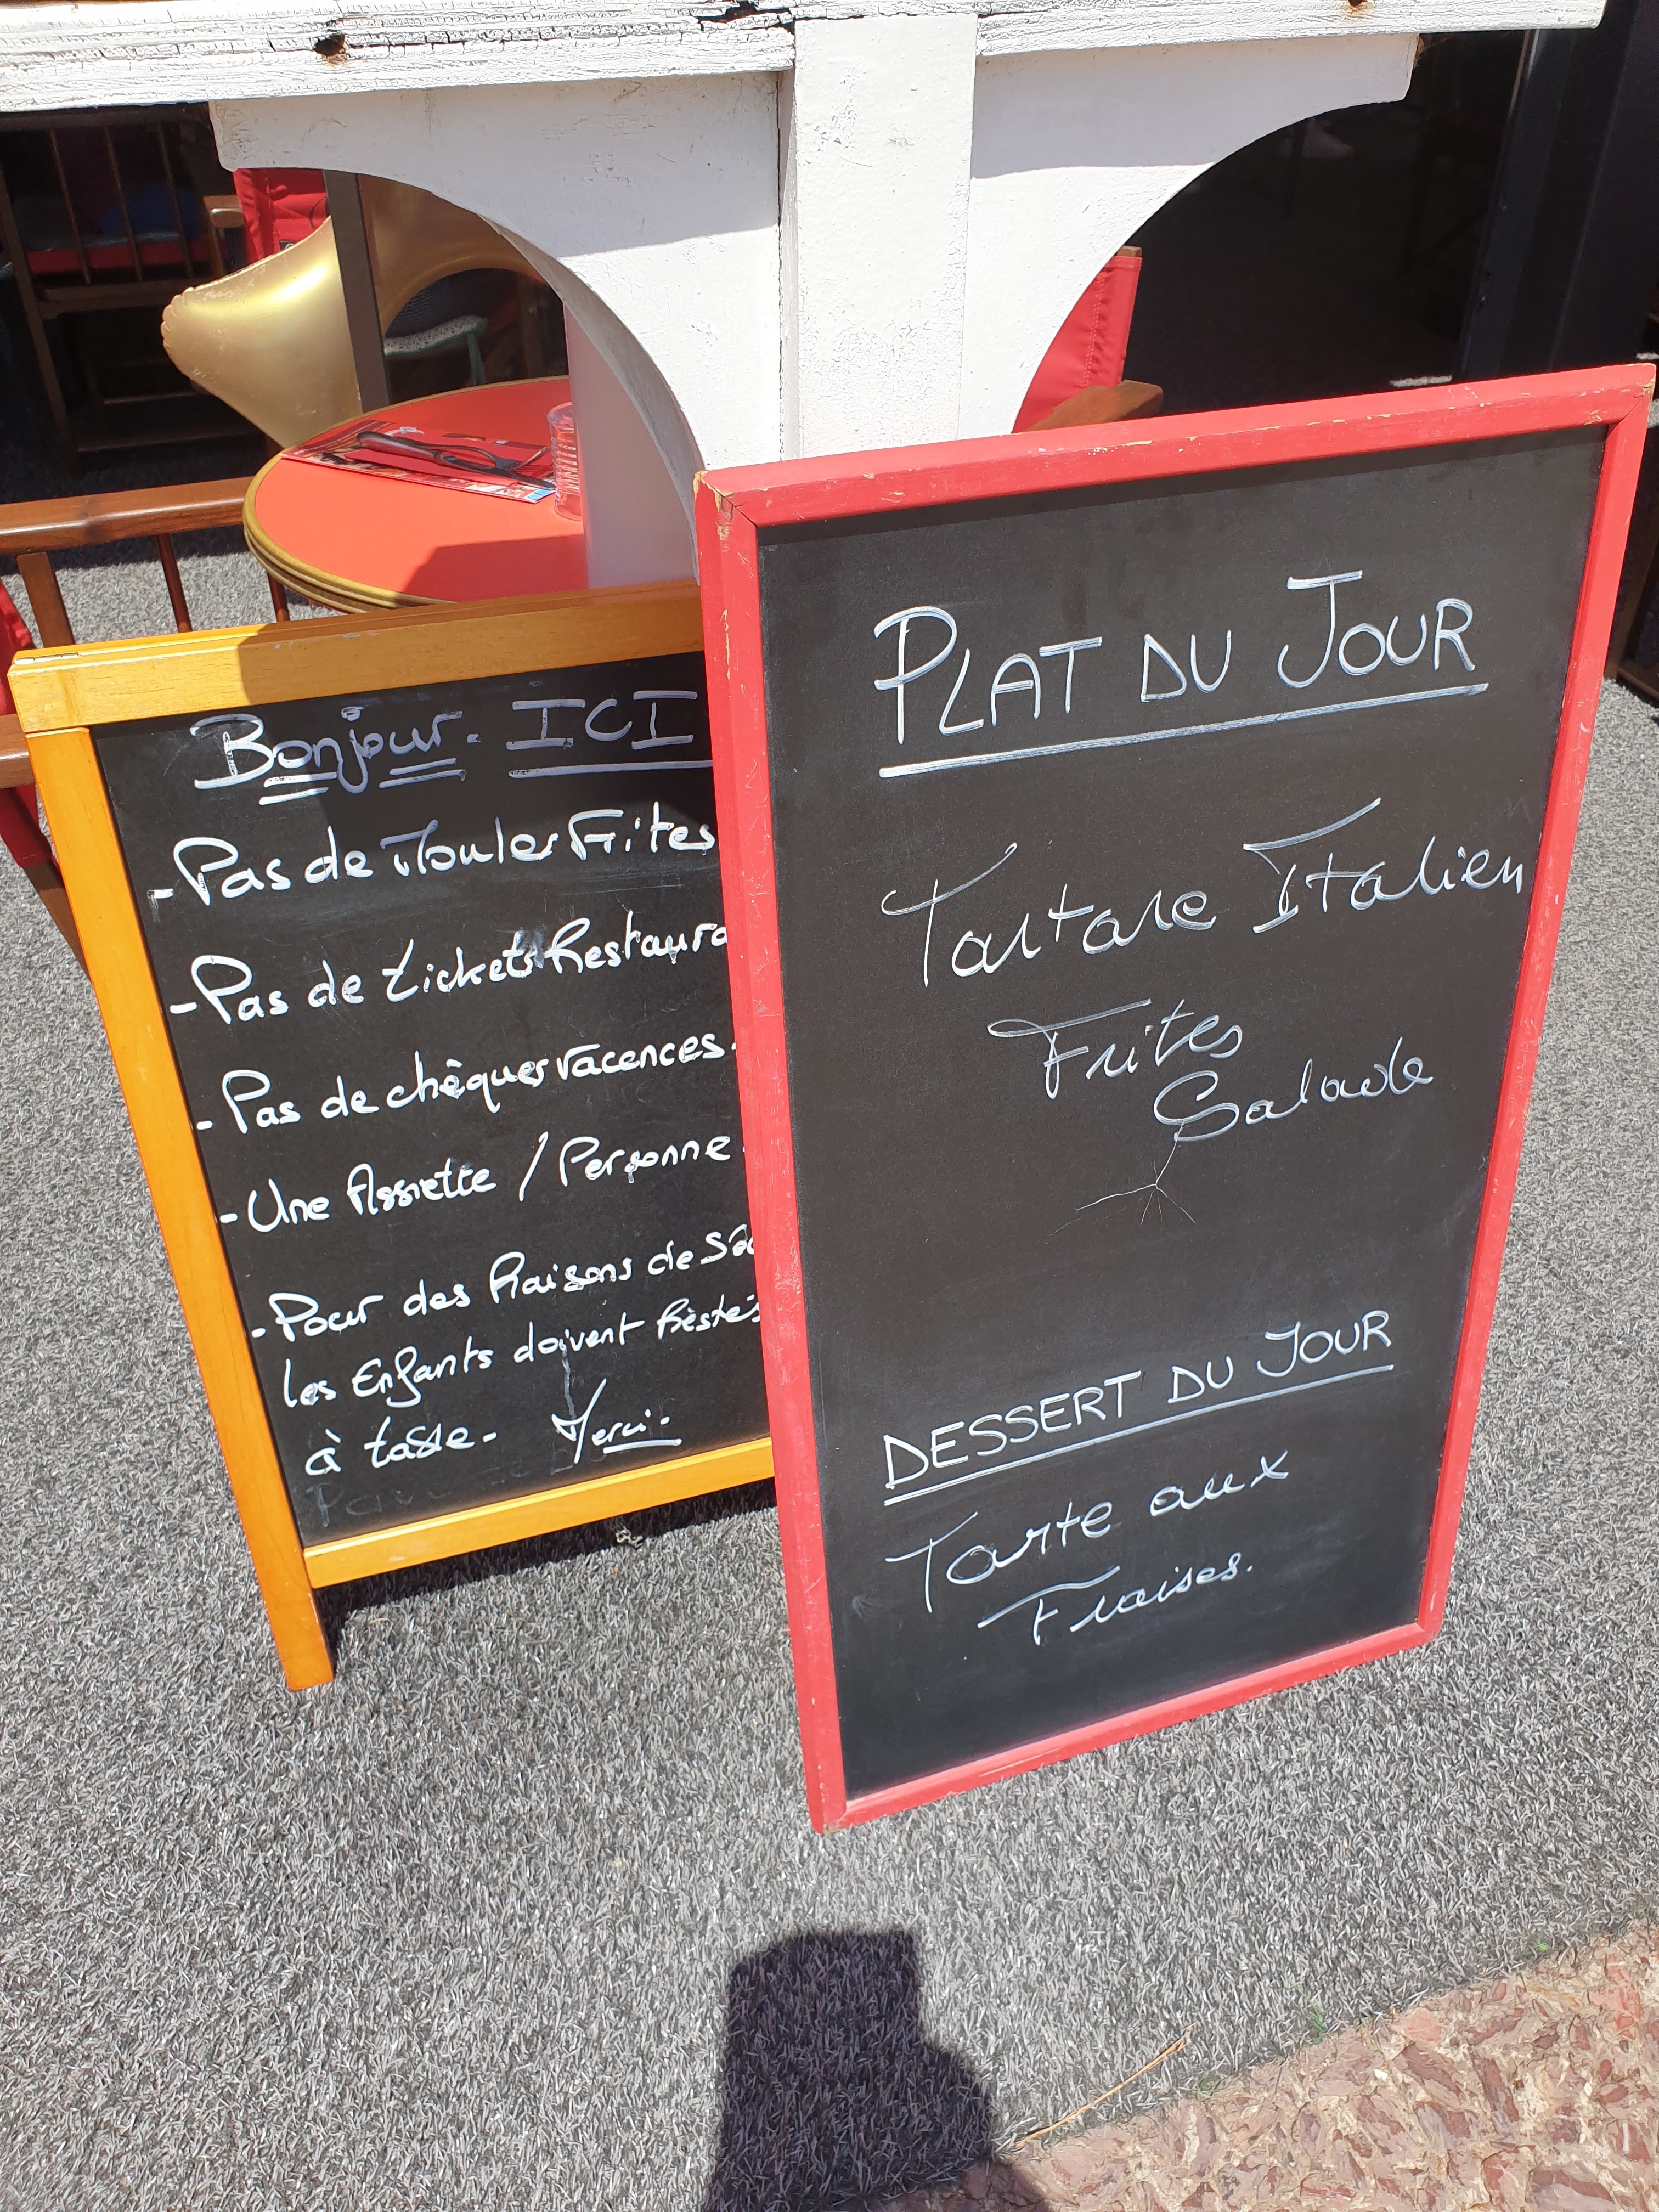 Bonjour. ICI
- Pas de Moules Frites
- Pas de tickets Restaura
- Pas de chèques vacences.
- Une Assiette / Personne.
- Pour des Raisons de Séc
les Enfants doivent Rèstés
à table - Merci.
PLAT DU JOUR
Tartare Italien
Frites
Salade
DESSERT DU JOUR
Tarte aux
Fraises.